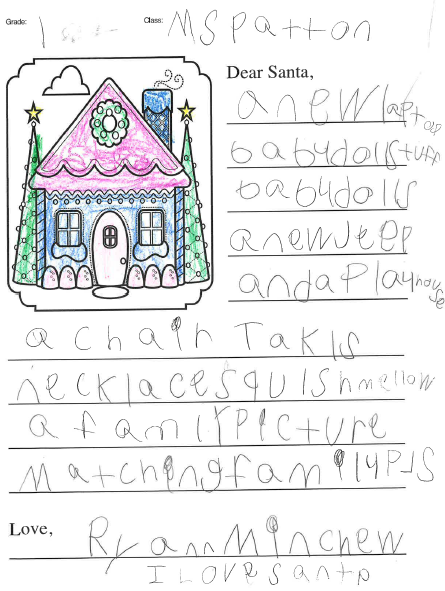 Grade: 1 Class: MS Patton
Dear Santa,
a new laptop
babydoll stuff
babydolls
a new Jeep
and a Playhouse
a chain Takis
necklace squishmellow
a family Picture
Matching family PJS
Love,
Ryann Minchew
I Love santa